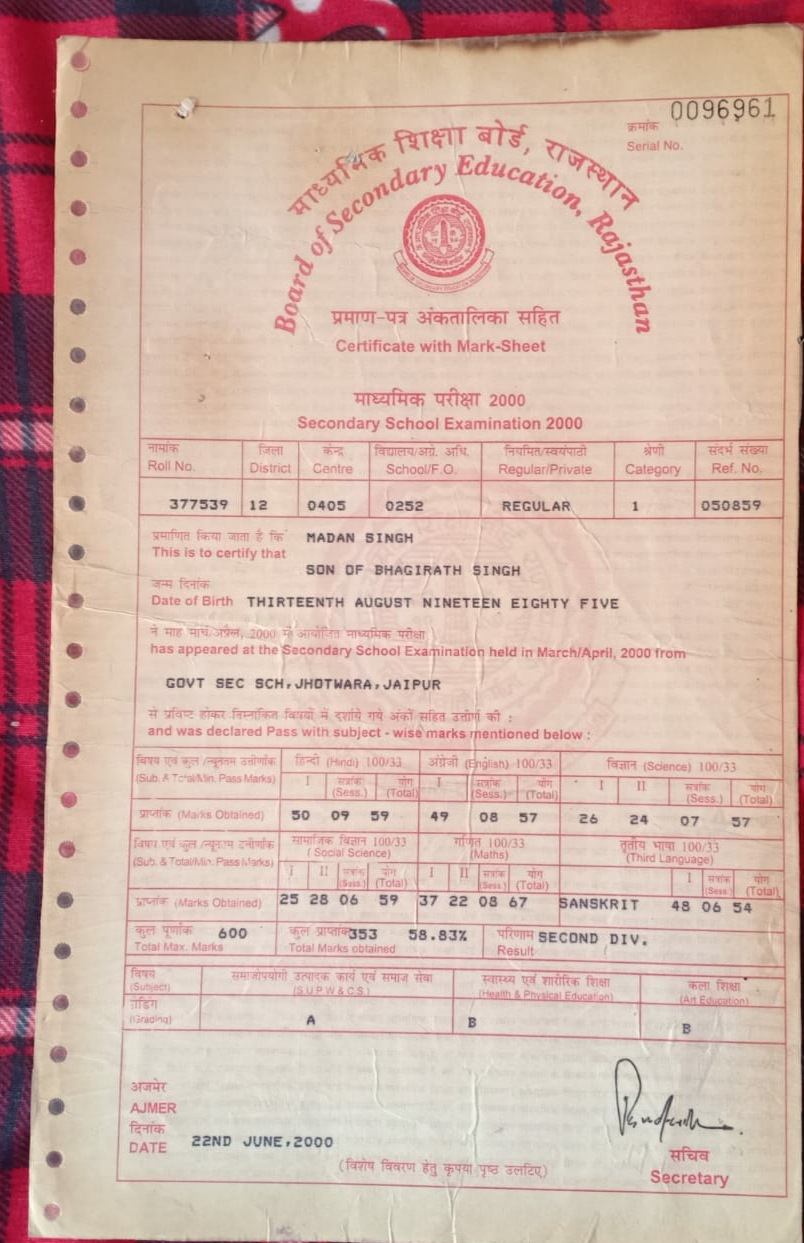 0096961
क्रमांक
Serial No.
माध्यमिक शिक्षा बोर्ड, राजस्थान
Board of Secondary Education, Rajasthan
प्रमाण-पत्र अंकतालिका सहित
Certificate with Mark-Sheet
माध्यमिक परीक्षा 2000
Secondary School Examination 2000
नामांक जिला केन्द्र विद्यालय/अग्रे. अधि. नियमित/स्वयंपाठी श्रेणी संदर्भ संख्या
Roll No. District Centre School/F.O. Regular/Private Category Ref. No.
377539 12 0405 0252 REGULAR 1 050859
प्रमाणित किया जाता है कि MADAN SINGH
This is to certify that
SON OF BHAGIRATH SINGH
जन्म दिनांक
Date of Birth THIRTEENTH AUGUST NINETEEN EIGHTY FIVE
ने माह मार्च/अप्रैल, 2000 में आयोजित माध्यमिक परीक्षा
has appeared at the Secondary School Examination held in March/April, 2000 from
GOVT SEC SCH,JHOTWARA,JAIPUR
से प्रविष्ट होकर निम्नांकित विषयों में दर्शाये गये अंकों सहित उत्तीर्ण की :
and was declared Pass with subject - wise marks mentioned below :
विषय एवं कुल /न्यूनतम उत्तीर्णांक हिन्दी (Hindi) 100/33 अंग्रेजी (English) 100/33 विज्ञान (Science) 100/33
(Sub. & Total/Min. Pass Marks) I सत्रांक योग I सत्रांक योग I II सत्रांक योग
(Sess.) (Total) (Sess.) (Total) (Sess.) (Total)
प्राप्तांक (Marks Obtained) 50 09 59 49 08 57 26 24 07 57
विषय एवं कुल /न्यूनतम उत्तीर्णांक सामाजिक विज्ञान 100/33 गणित 100/33 तृतीय भाषा 100/33
(Sub. & Total/Min. Pass Marks) (Social Science) (Maths) (Third Language)
I II सत्रांक योग I II सत्रांक योग I सत्रांक योग
(Sess.) (Total) (Sess.) (Total) (Sess.) (Total)
प्राप्तांक (Marks Obtained) 25 28 06 59 37 22 08 67 SANSKRIT 48 06 54
कुल पूर्णांक 600 कुल प्राप्तांक 353 58.83% परिणाम SECOND DIV.
Total Max. Marks Total Marks obtained Result
विषय समाजोपयोगी उत्पादक कार्य एवं समाज सेवा स्वास्थ्य एवं शारीरिक शिक्षा कला शिक्षा
(Subject) (S.U.P.W.& C.S.) (Health & Physical Education) (Art Education)
ग्रेडिंग
(Grading) A B B
अजमेर
AJMER
दिनांक
DATE 22ND JUNE,2000
सचिव
Secretary
(विशेष विवरण हेतु कृपया पृष्ठ उलटिए)